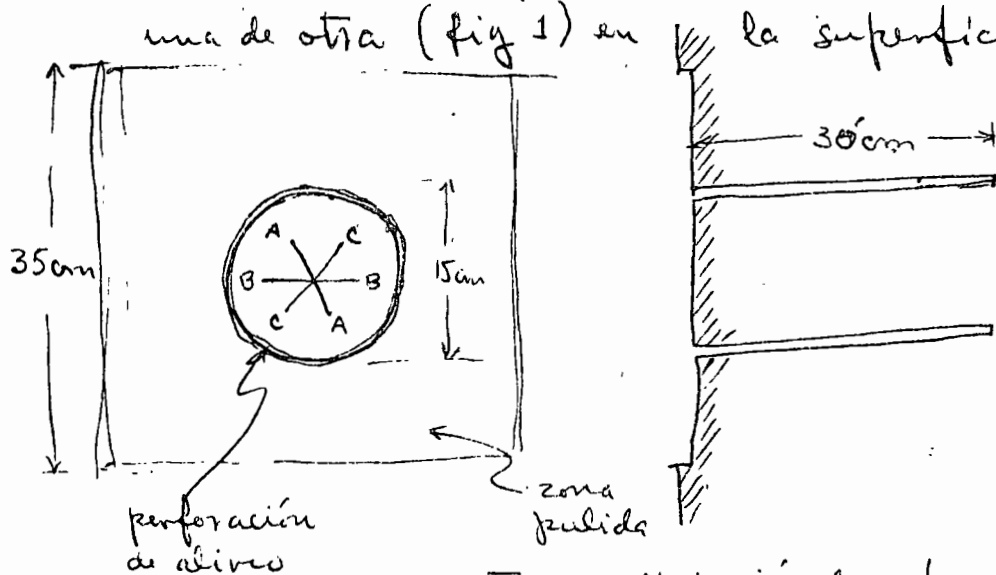 una de otra (fig 1) en la superfic
35cm
A C
B B
C A
15cm
30cm
perforación
de alivio
zona
pulida